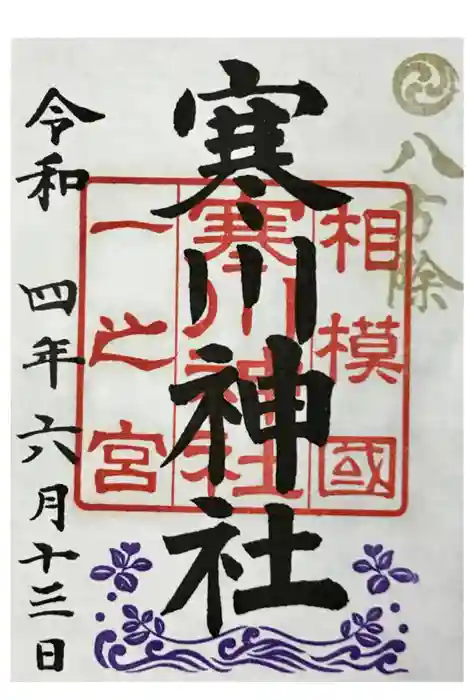 八方除
相模國
寒川神社
一之宮
寒川神社
令和 四年六月十三日